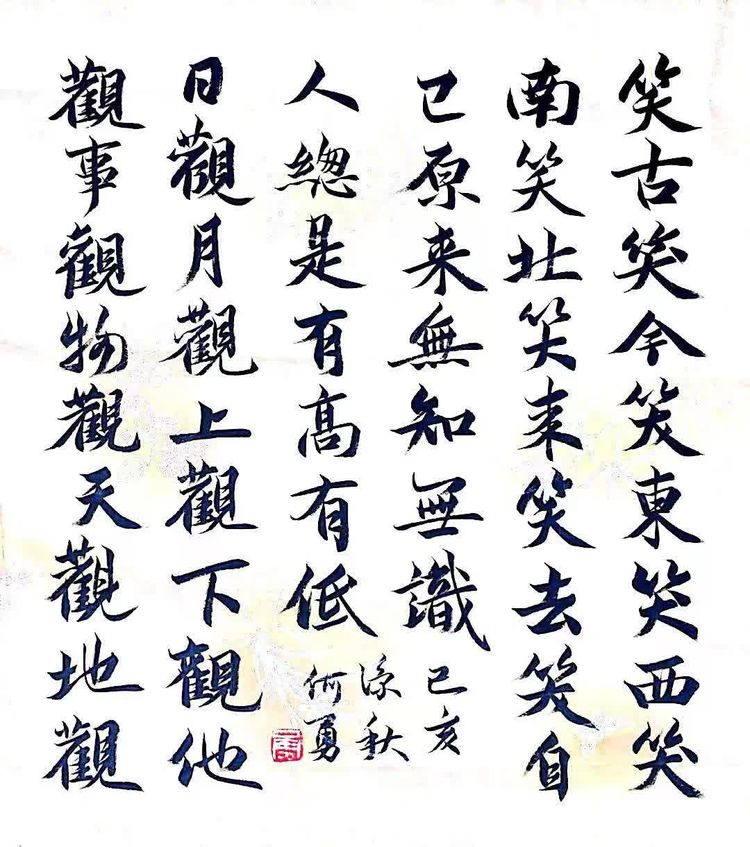 笑古笑今笑東笑西笑
南笑北笑来笑去笑自
己原来無知無識
觀事觀物觀天觀地觀
日觀月觀上觀下觀他
人總是有高有低
己亥
深秋
何勇